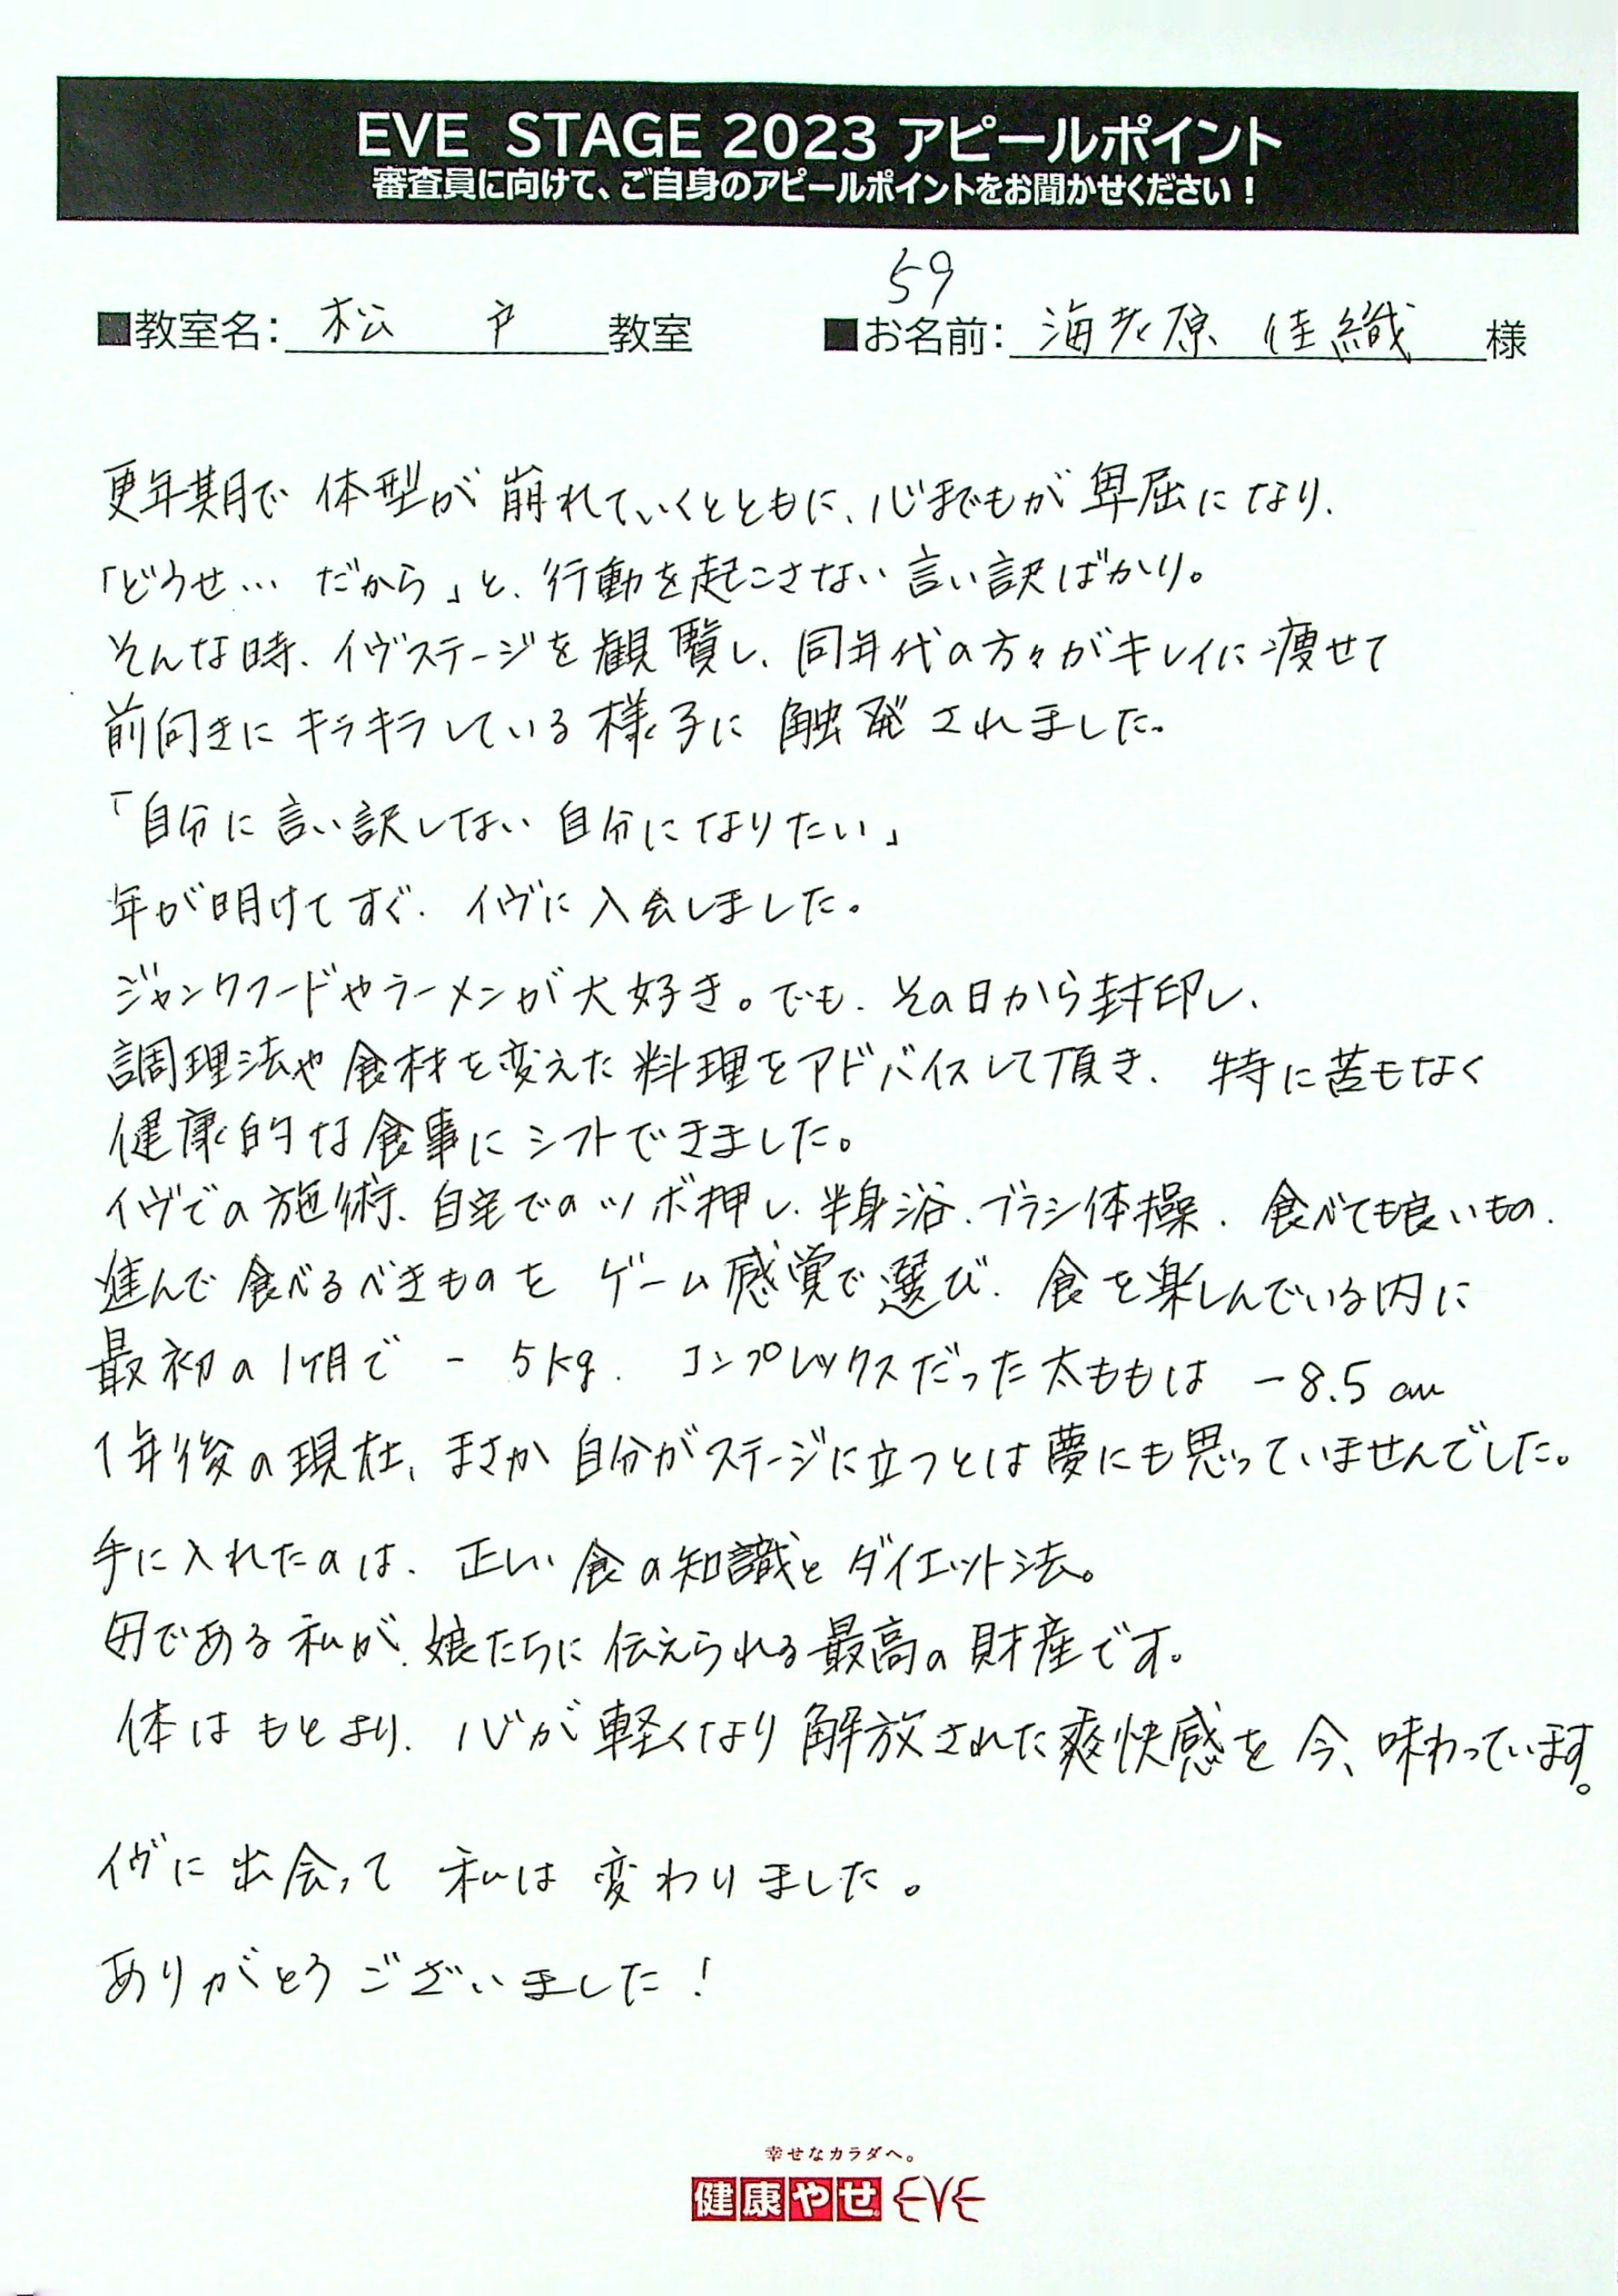 EVE STAGE 2023 アピールポイント
審査員に向けて、ご自身のアピールポイントをお聞かせください！
59
■教室名： 松戸 教室 ■お名前： 海老原 佳織 様
更年期で 体型が 崩れていくとともに、心までもが 卑屈になり、
「どうせ… だから」と、行動を起こさない 言い訳ばかり。
そんな時、イヴステージを観覧し、同年代の方々がキレイに痩せて
前向きに キラキラしている様子に 触発されました。
「自分に言い訳しない 自分になりたい」
年が明けてすぐ、イヴに入会しました。
ジャンクフードやラーメンが大好き。でも、その日から封印し、
調理法や食材を変えた料理をアドバイスして頂き、特に苦もなく
健康的な食事にシフトできました。
イヴでの施術、自宅でのツボ押し、半身浴、ブラシ体操、食べても良いもの、
進んで食べるべきものを ゲーム感覚で選び、食を楽しんでいる内に
最初の1ヶ月で －5kg、コンプレックスだった太ももは －8.5cm
1年後の現在、まさか自分がステージに立つとは夢にも思っていませんでした。
手に入れたのは、正しい食の知識とダイエット法。
母である私が、娘たちに伝えられる最高の財産です。
体はもとより、心が軽くなり解放された爽快感を今、味わっています。
イヴに出会って 私は変わりました。
ありがとうございました！
幸せなカラダへ。
健康やせ EVE